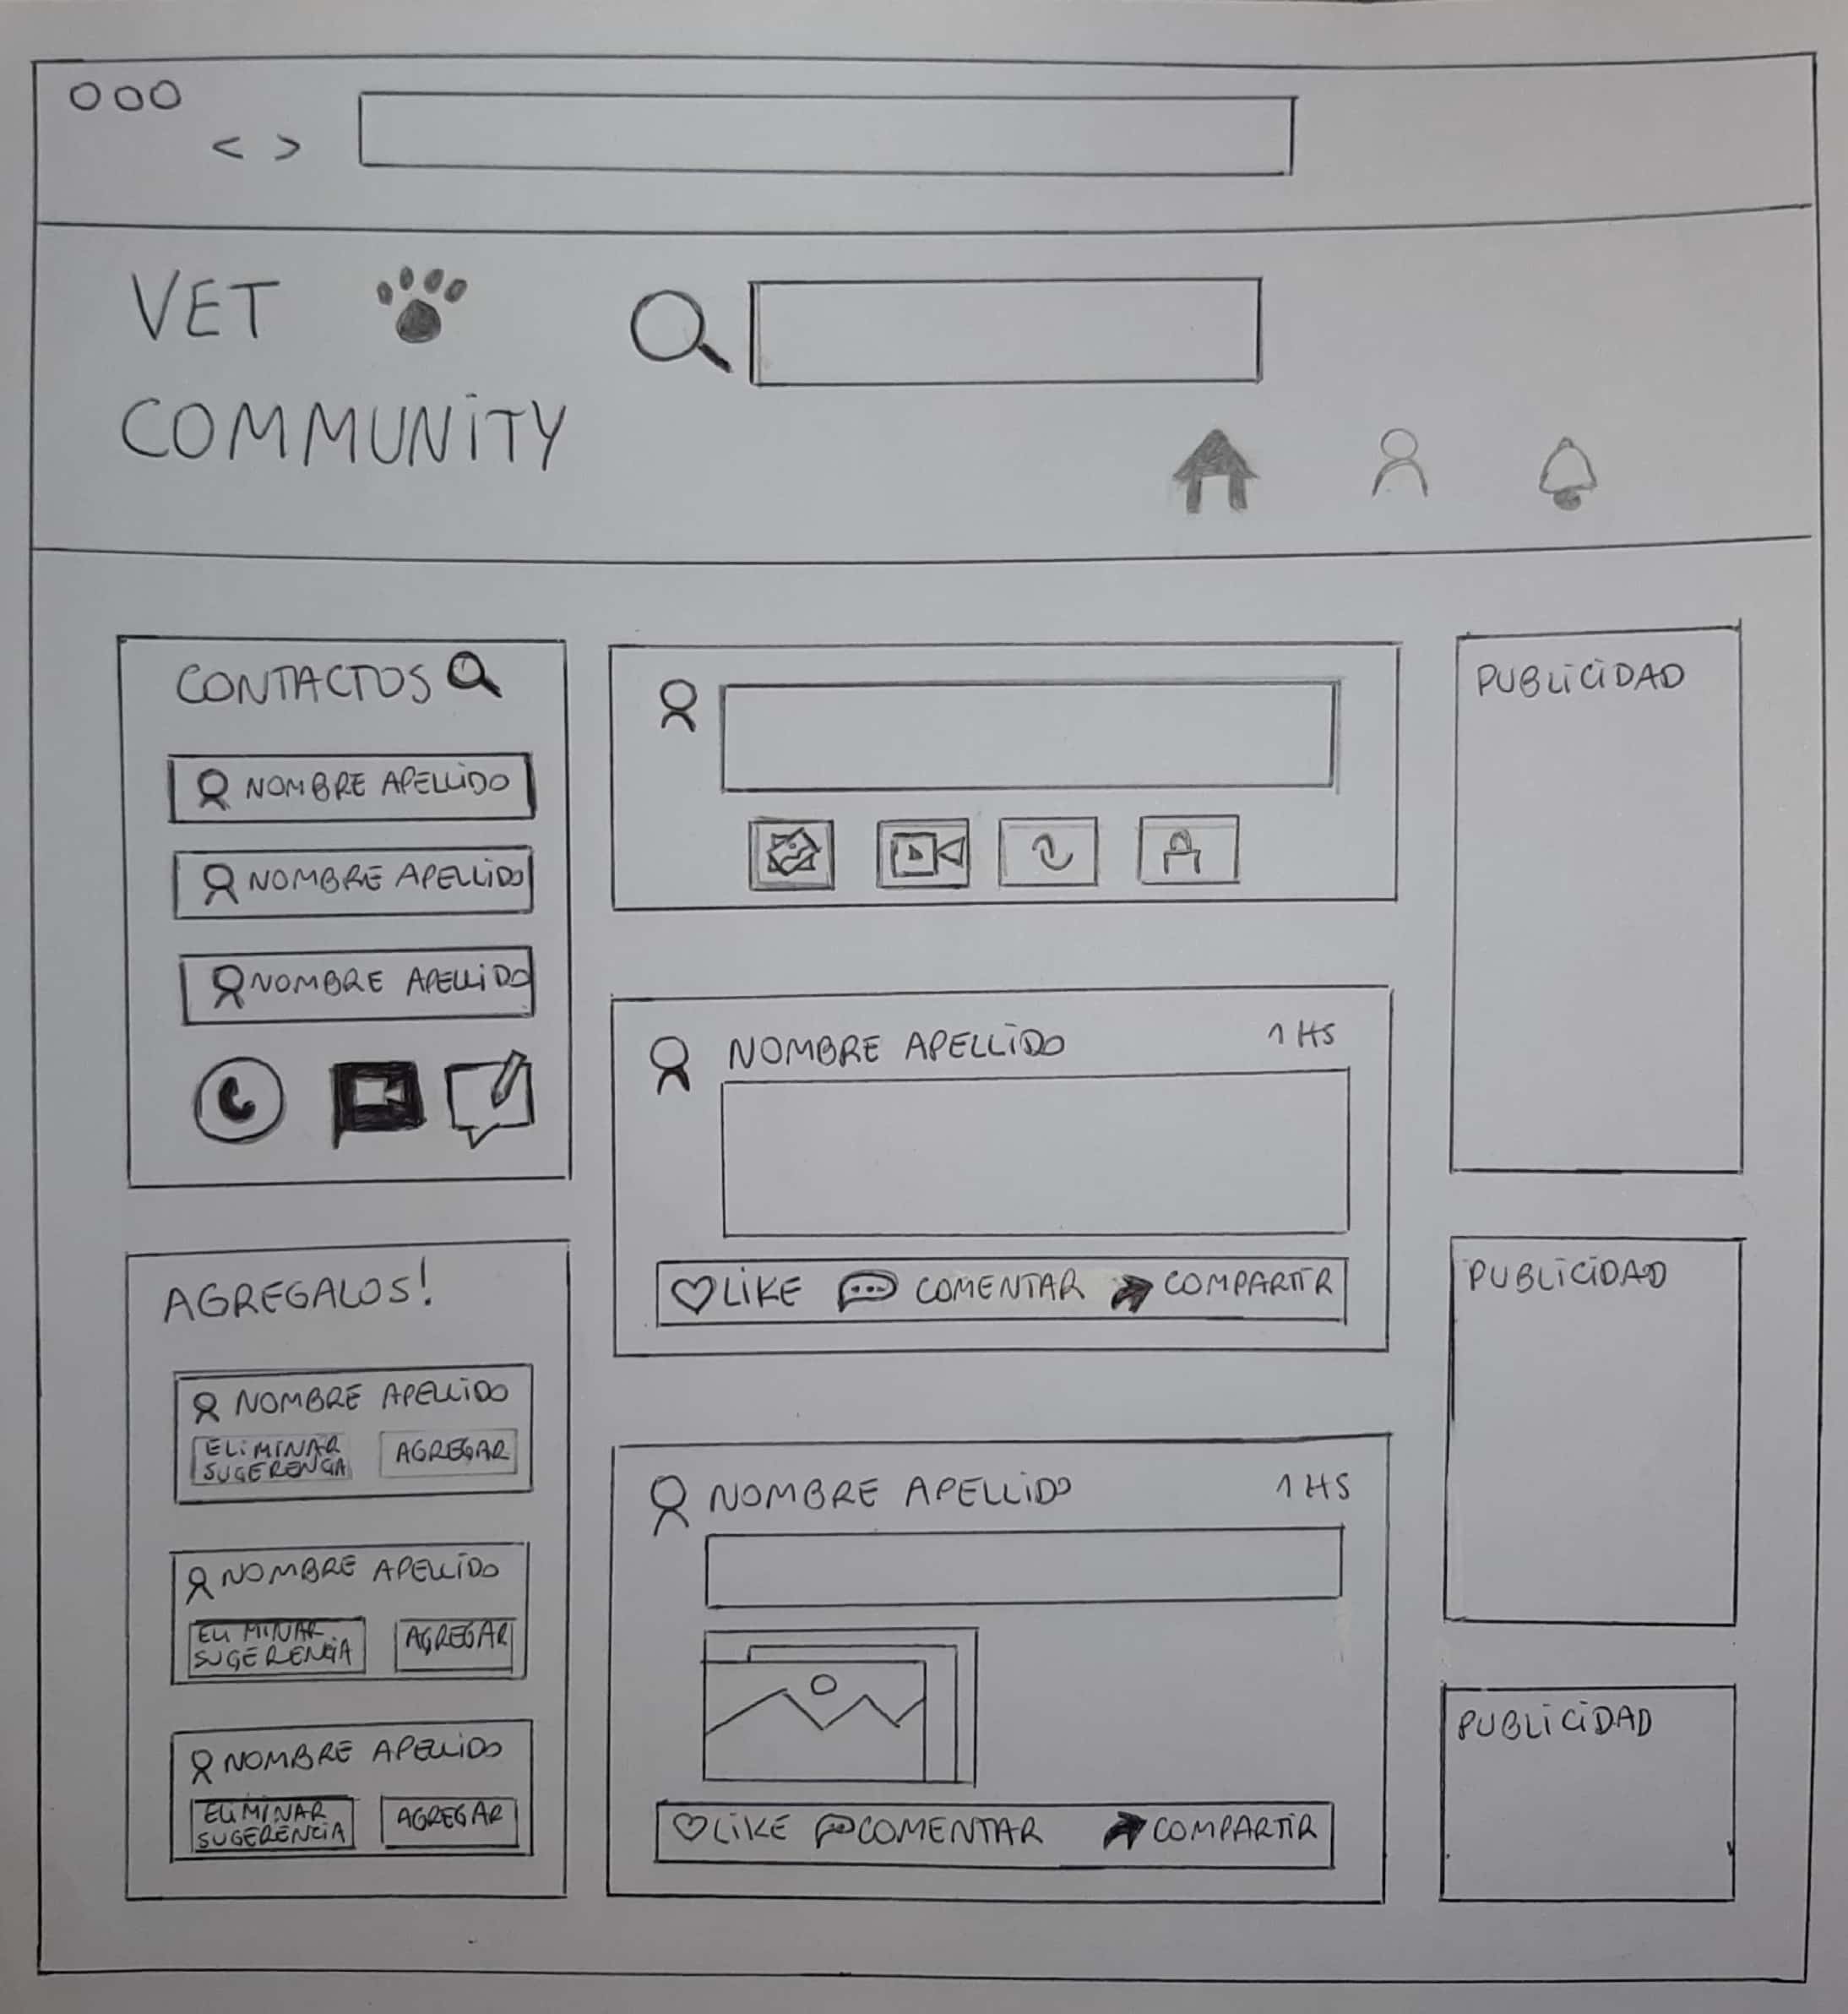 VET
COMMUNITY
CONTACTOS
NOMBRE APELLIDO
NOMBRE APELLIDO
NOMBRE APELLIDO
AGREGALOS!
NOMBRE APELLIDO
ELIMINAR
SUGERENCIA
AGREGAR
NOMBRE APELLIDO
ELIMINAR
SUGERENCIA
AGREGAR
NOMBRE APELLIDO
ELIMINAR
SUGERENCIA
AGREGAR
NOMBRE APELLIDO 1 HS
LIKE COMENTAR COMPARTIR
NOMBRE APELLIDO 1 HS
LIKE COMENTAR COMPARTIR
PUBLICIDAD
PUBLICIDAD
PUBLICIDAD